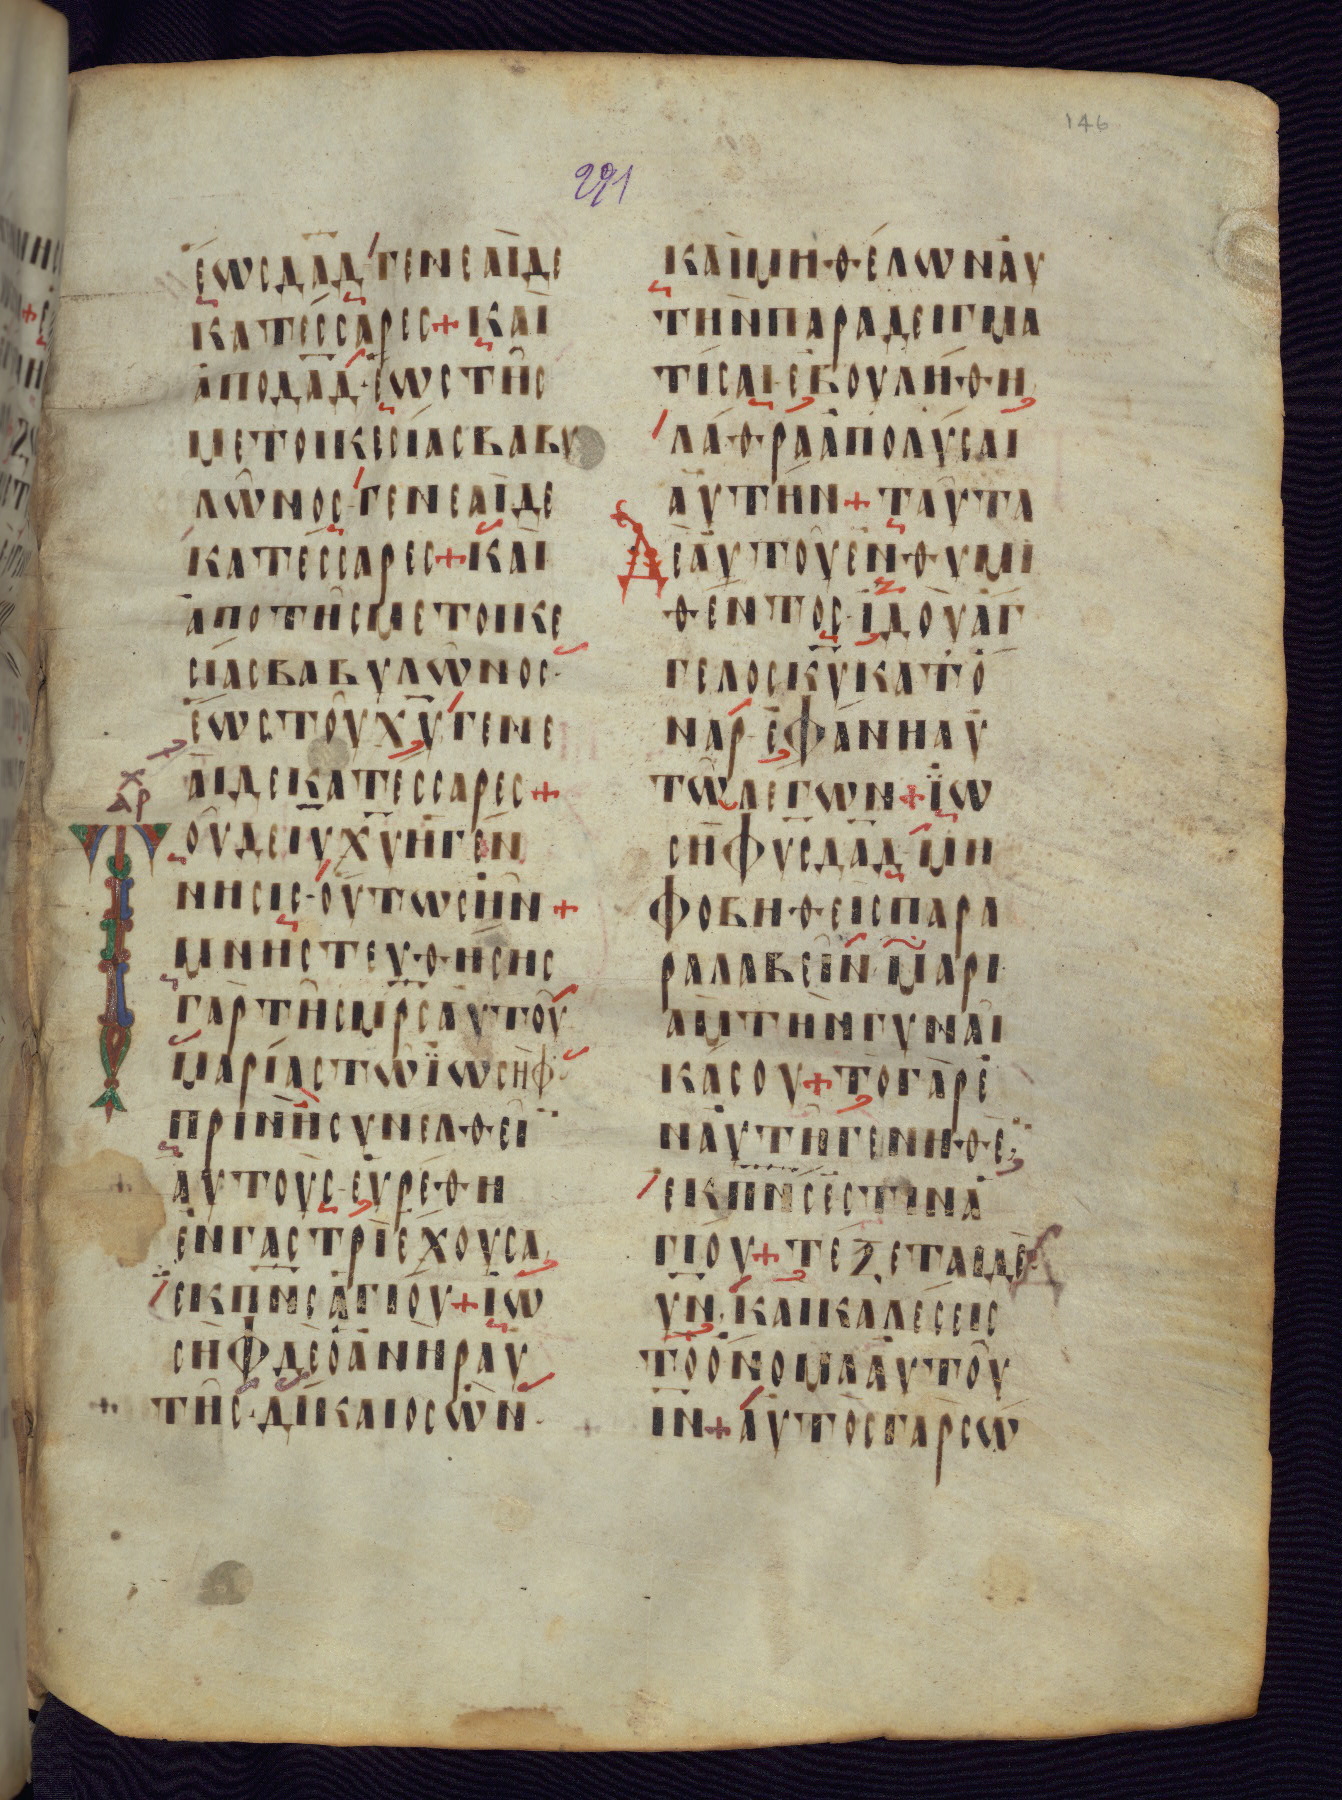 146
291
ἕωσ δα̅δ̅ γενεαὶ δε
κατέσσαρες + καὶ
ἀπὸ δα̅δ̅ · ἕως τῆς
μετοικεσίας βαβυ
λῶνος · γενεαὶ δε
κατέσσαρες + καὶ
ἀπὸ τῆς μετοικε
σίας βαβυλῶνος ·
ἕως τοῦ χ̅υ̅ γενε
αὶ δεκατέσσαρες +
χ
αρ
Τοῦ δὲ ι̅υ̅ χ̅υ̅ ἡ γέν
νησις · οὕτως ἦν +
μνηστευθήσης
γὰρ τῆς μ̅ρ̅ς αὐτοῦ
μαρίας τῶ ϊωσὴφ ·
πρὶν ἢ συνελθεῖ
αὐτοὺς · εὑρέθη
ἐν γαστρὶ ἔχουσα,
ἐκ π̅ν̅ς ἁγίου + ϊω
σὴφ δὲ ὁ ἀνὴρ αὐ
τῆς · δίκαιος ὢν ·
καὶ μὴ θέλων αὐ
τὴν παραδειγμα
τίσαι · ἐβουλήθη,
λάθρα ἀπολύσαι
αὐτὴν + ταῦτα
Δὲ αὐτοῦ ἐνθυμι
θέντος · ἰδοὺ ἄγ
γελος κ̅υ̅ κατ' ὄ
ναρ · ἐφάνη αὐ
τῶ λέγων + ϊω
σὴφ υς δα̅δ̅ · μὴ
φοβηθεὶς παρα
ραλαβεῖν · μαρι
ὰμ τὴν γυναῖ
κά σου + τὸ γὰρ ἐ
ν αὐτῆ γεννηθὲ,
ἐκ π̅ν̅ς ἐστιν ἁ
γίου + τέξεται δὲ
υ̅ν̅, καὶ καλέσεις
τὸ ὄνομα αὐτοῦ
ι̅ν̅ + αὐτὸς γὰρ σώ